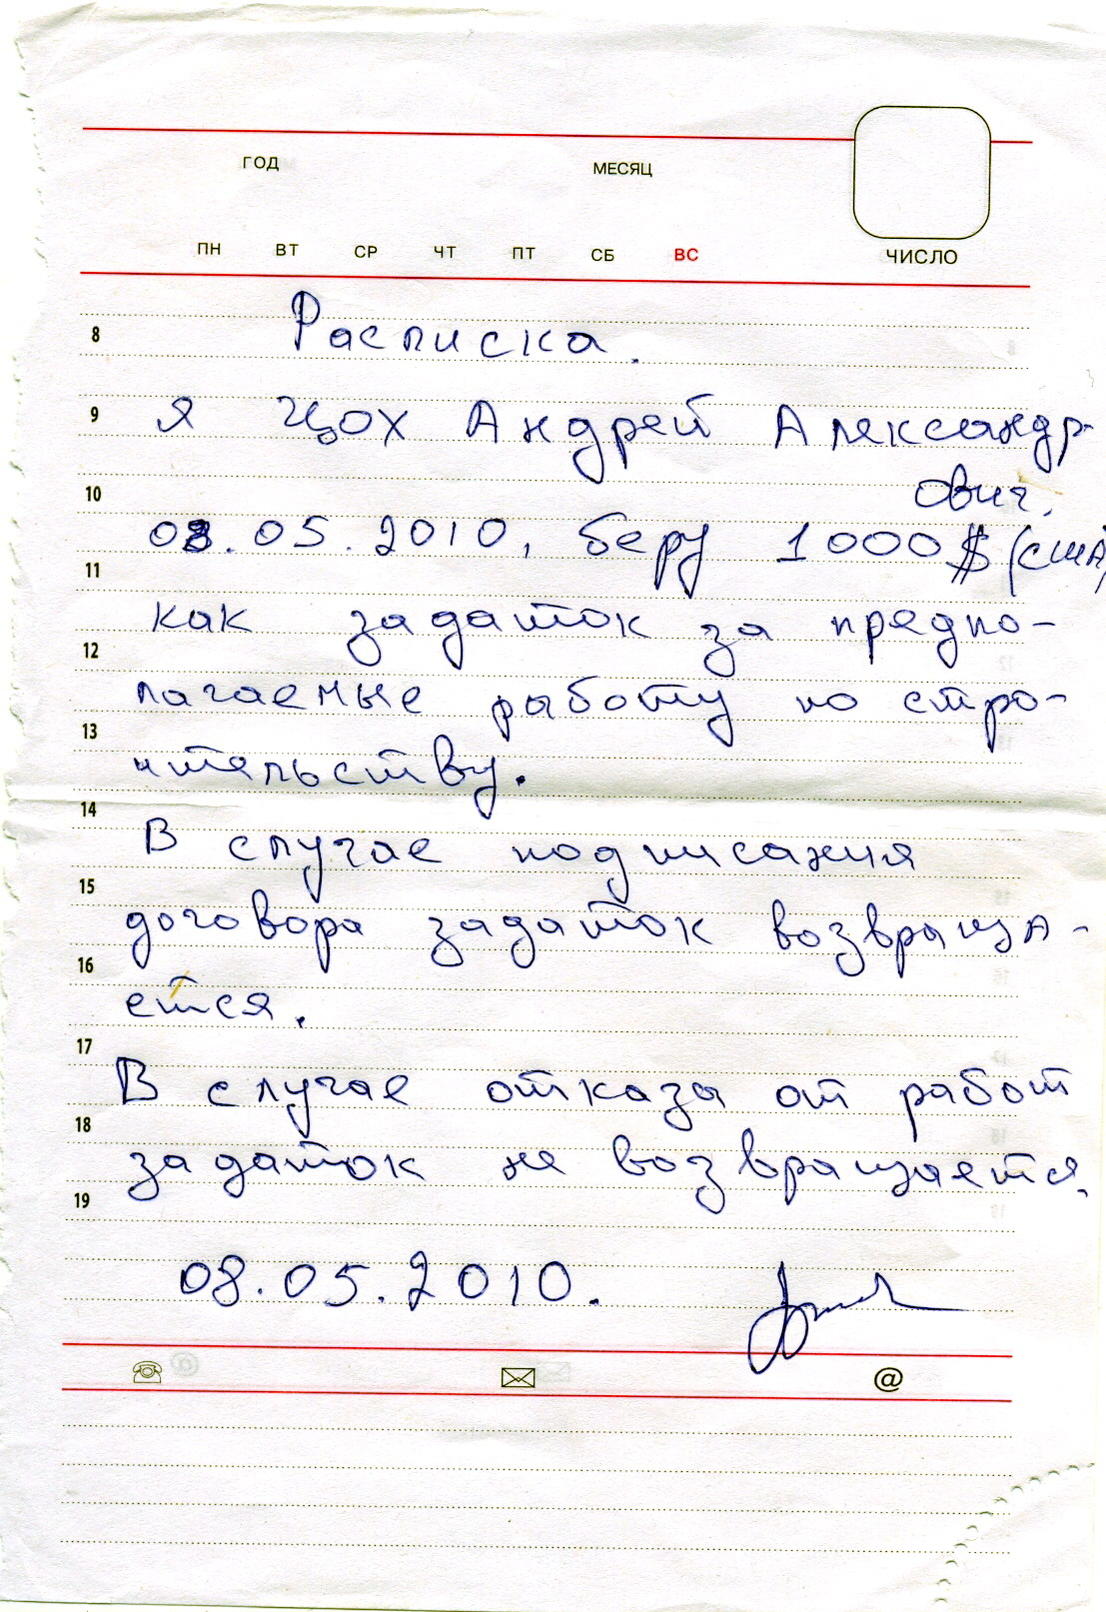 ГОД МЕСЯЦ
ПН ВТ СР ЧТ ПТ СБ ВС ЧИСЛО
8 Расписка.
9 Я Цох Андрей Александр-
10 ович.
08.05.2010, беру 1000$ (сша)
11
как задаток за предпо-
12
лагаемые работу по стро-
13
ительству.
14
В случае подписания
15
договора задаток возвраща-
16
ется.
17
В случае отказа от работ
18
задаток не возвращается.
19
08.05.2010.
@